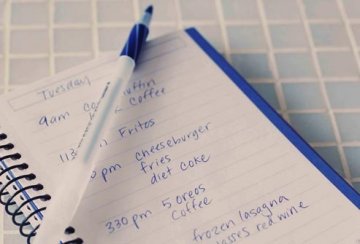 Tuesday
9am muffin
coffee
Fritos
pm cheeseburger
fries
diet coke
330 pm 5 oreos
coffee
frozen lasagna
red wine